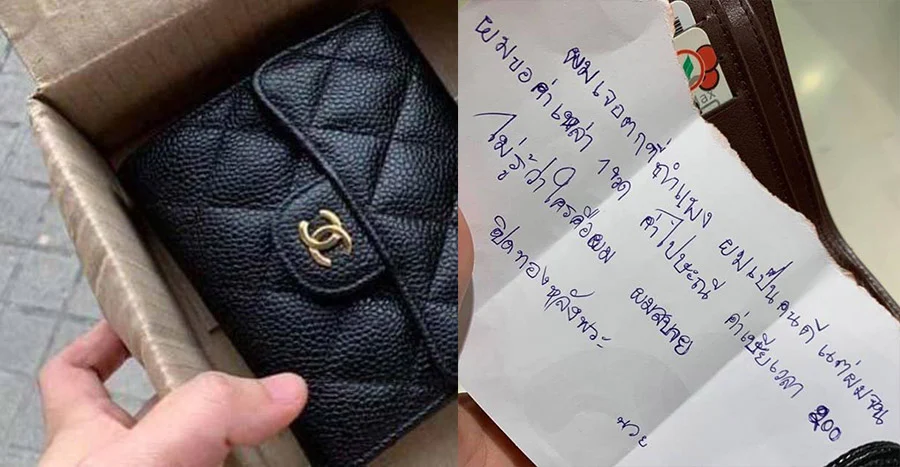 ผมเจอตกที่กำแพง ผมเป็นคนดีแต่ผมจน
ผมขอค่าเหล้า 1 ขวด ค่าไปรษณี ค่าเสียเวลา 200
ไม่รู้ว่าใครคือผม ผมสบาย
ปิดทองหลังพระ